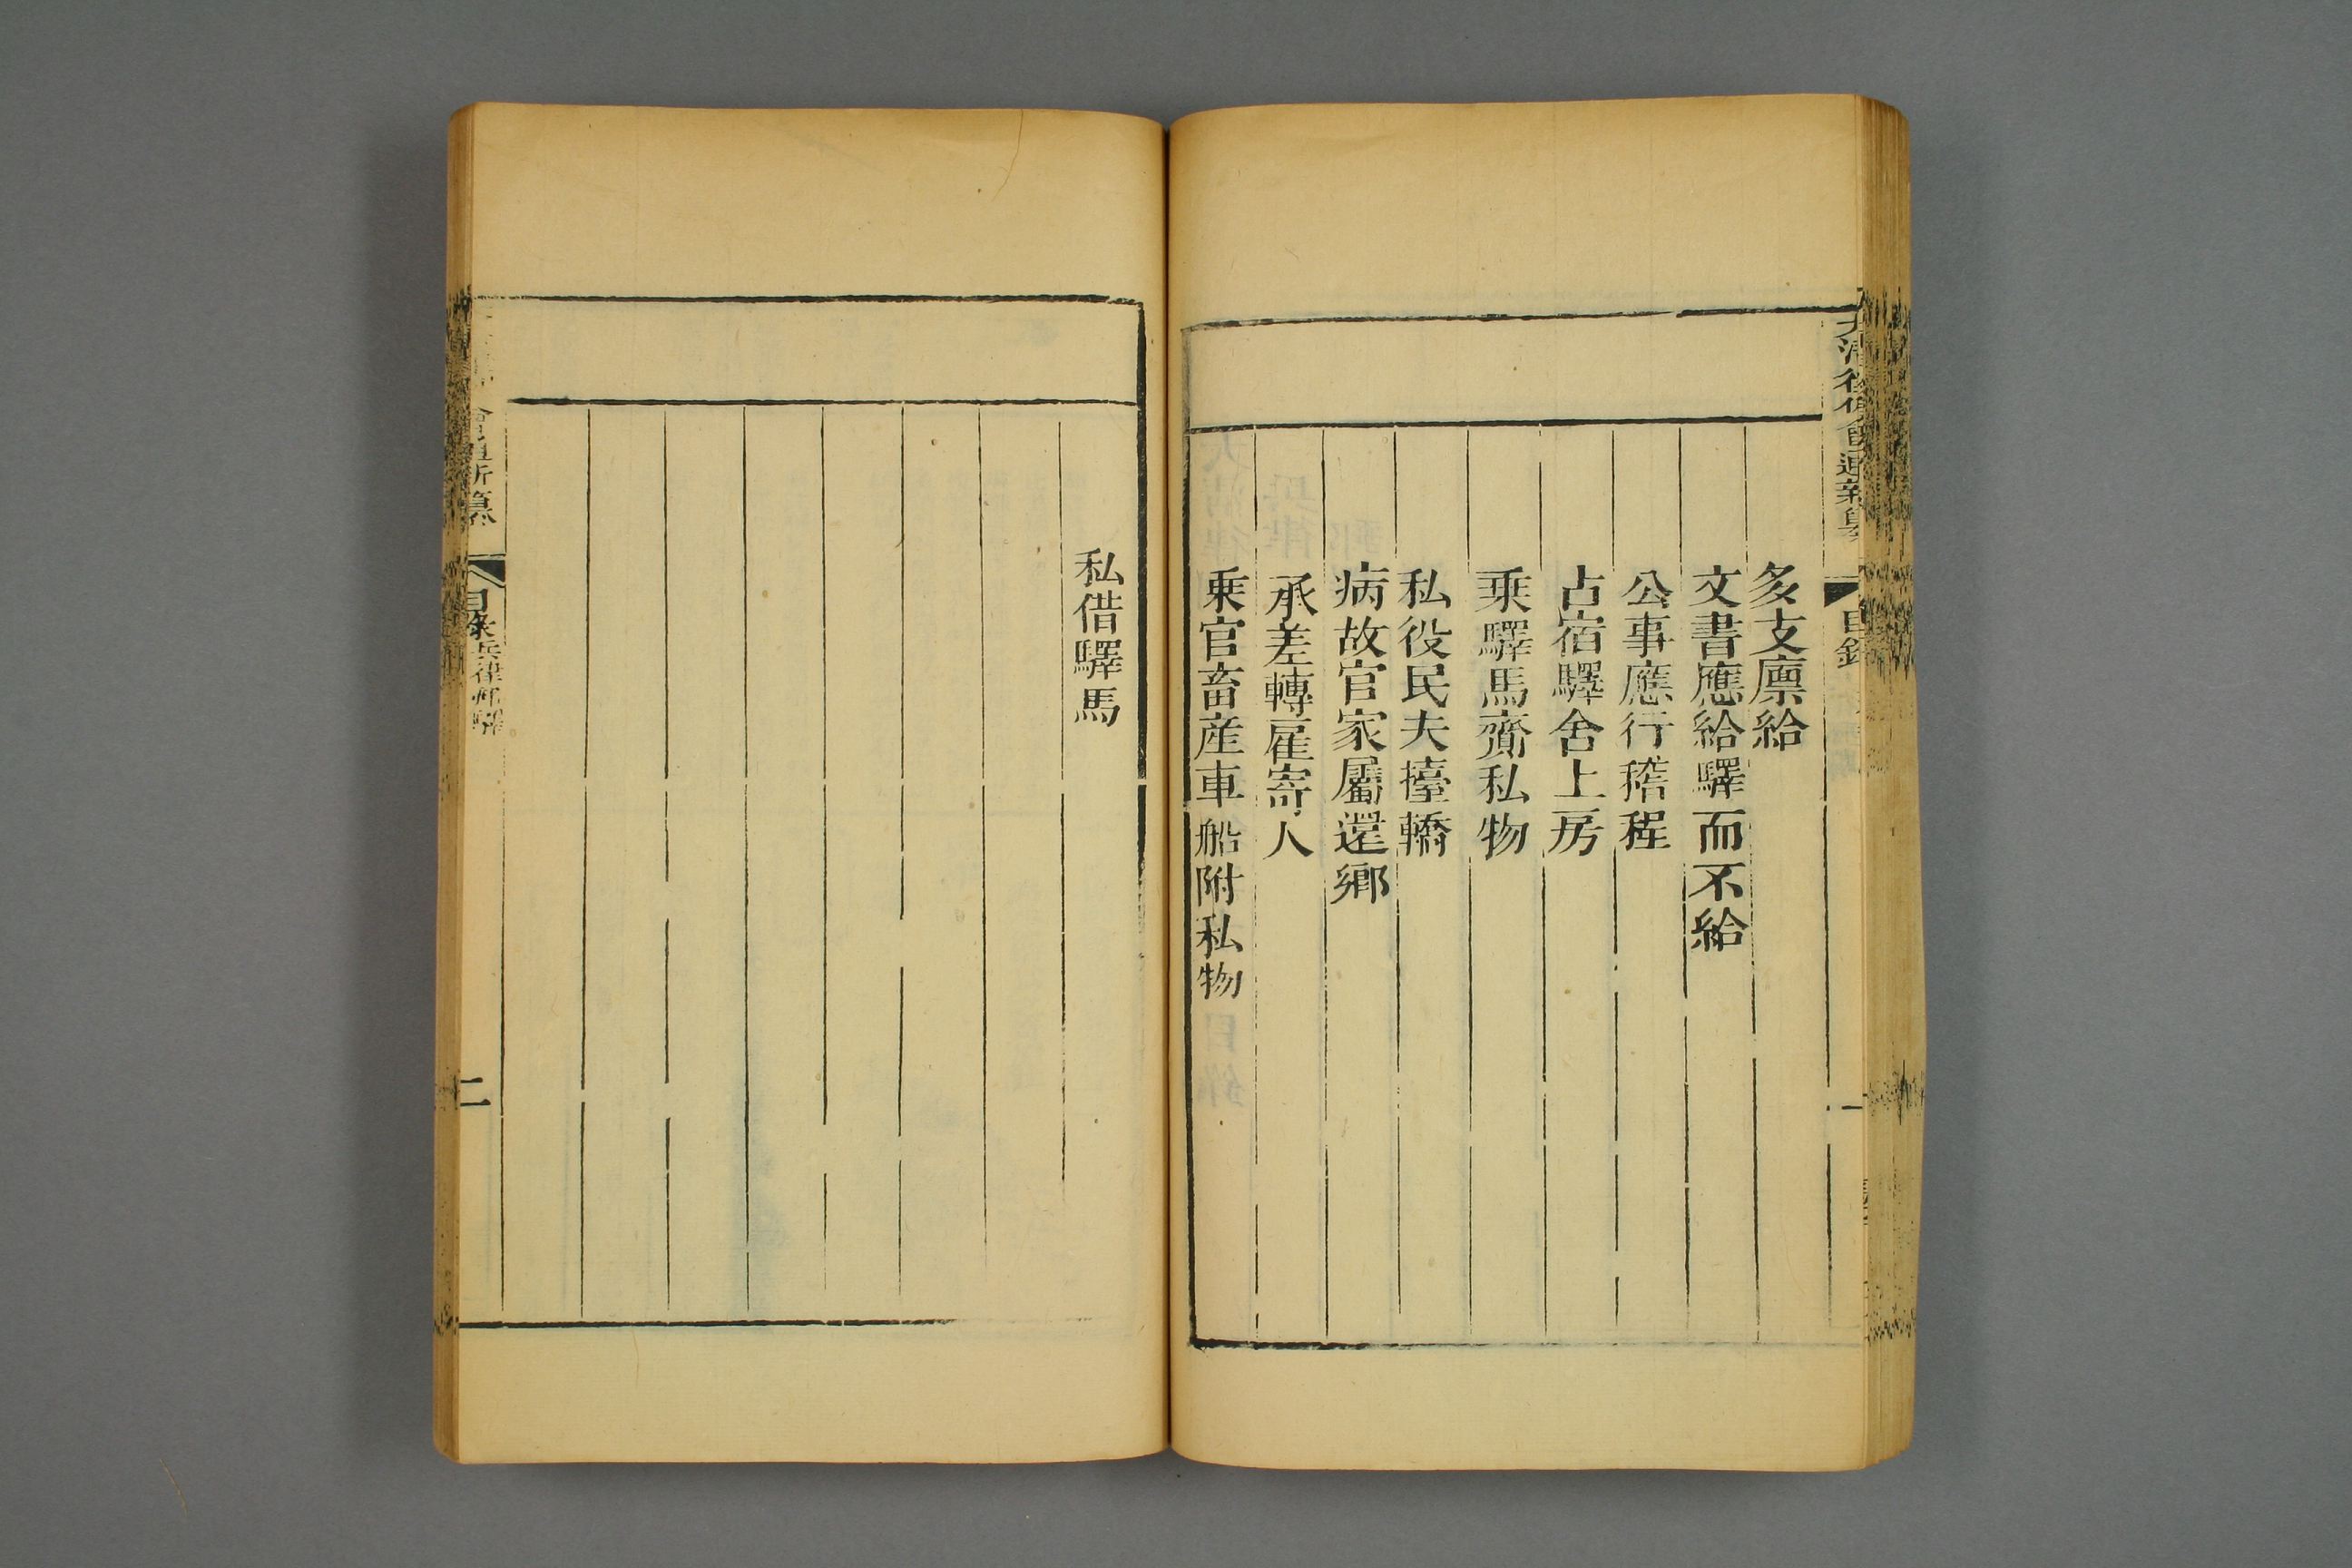 大清律例會通新纂
目錄
一
多支廪給
文書應給驛而不給
公事應行稽程
占宿驛舍上房
乘驛馬齎私物
私役民夫擡轎
病故官家屬還鄉
承差轉雇寄人
乘官畜産車船附私物
私借驛馬
會通新纂
目錄
兵律郵驛
二